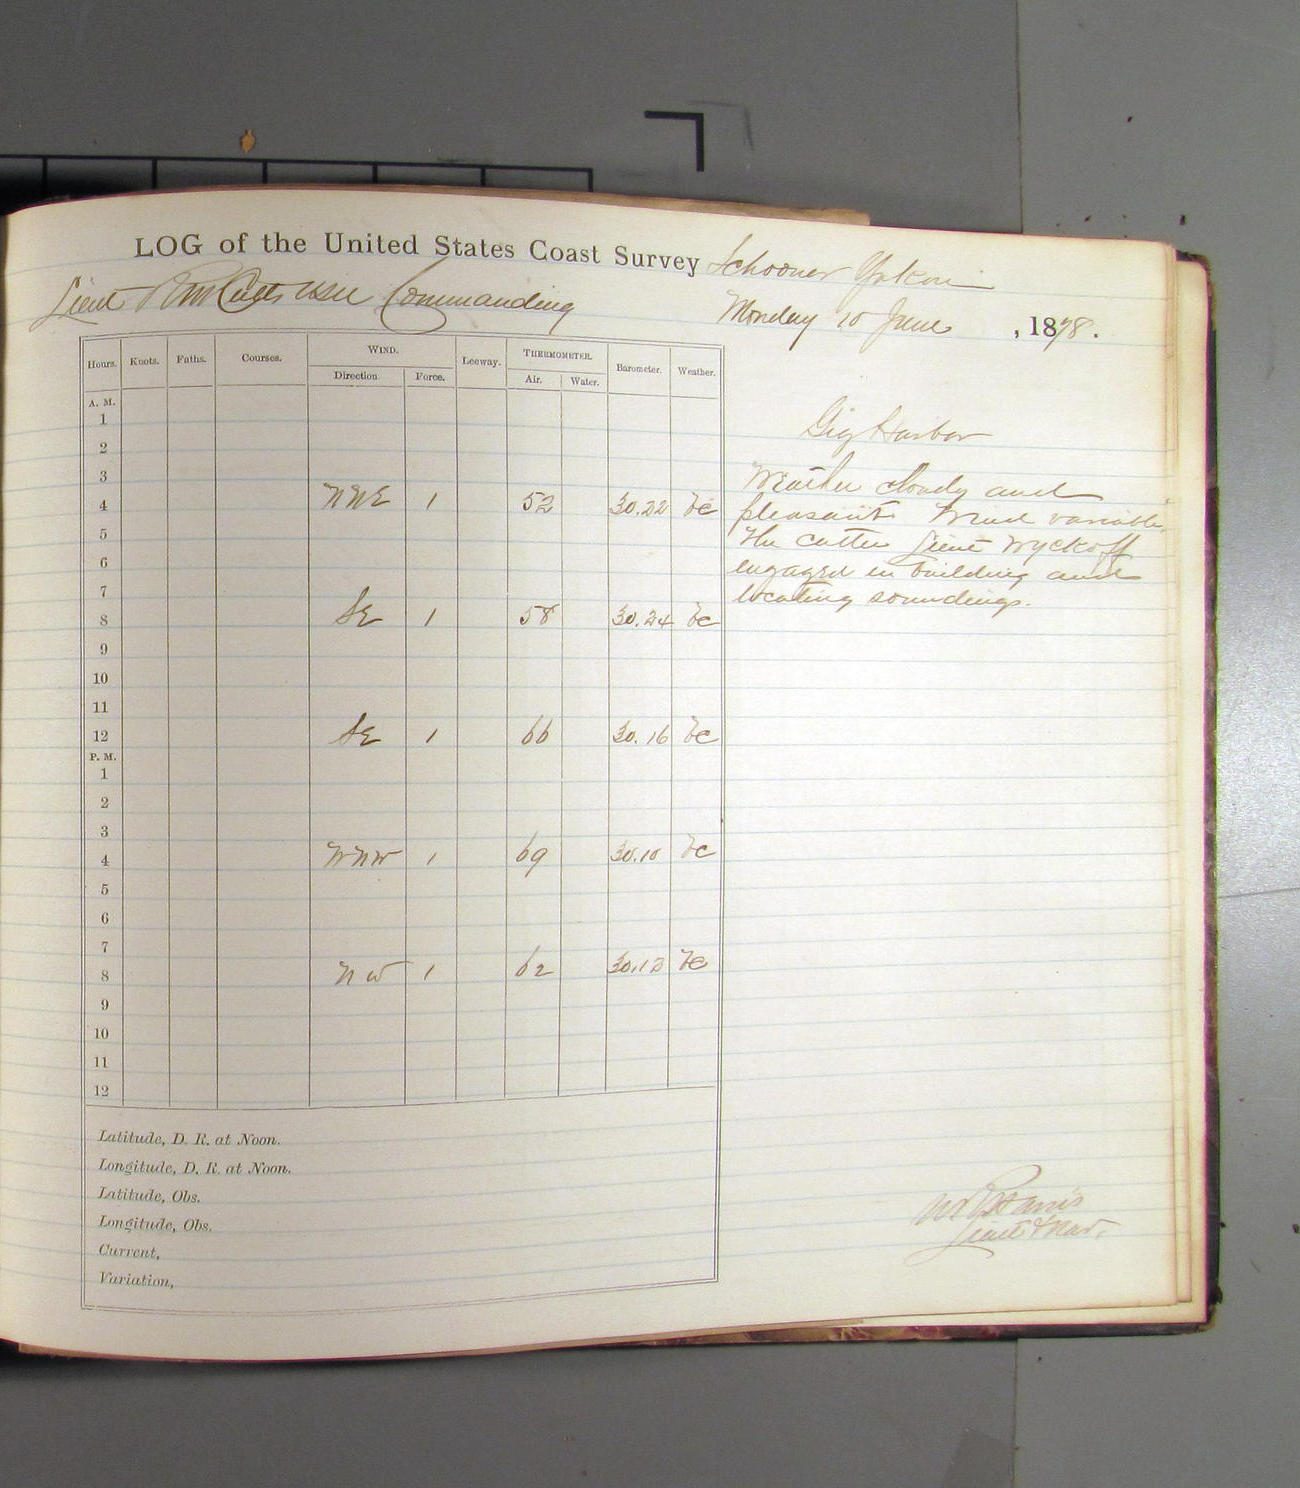 LOG of the United States Coast Survey Schooner Yukon
Lieut Commanding
Monday 10 June , 1878.
Hours. Knots. Faths. Courses. WIND. Leeway. THERMOMETER. Barometer. Weather.
Direction Force. Air. Water.
A. M.
1
2
3
4 NNE 1 52 30.22 bc
5
6
7
8 SE 1 58 30.24 bc
9
10
11
12 SE 1 66 30.16 bc
P. M.
1
2
3
4 WNW 1 69 30.10 bc
5
6
7
8 NW 1 62 30.13 bc
9
10
11
12
Gig Harbor
Weather cloudy and
pleasant. Wind variable.
The cutter Lieut Wyckoff
engaged in building and
locating soundings.
Latitude, D. R. at Noon.
Longitude, D. R. at Noon.
Latitude, Obs.
Longitude, Obs.
Current,
Variation,
Lieut & Nav.